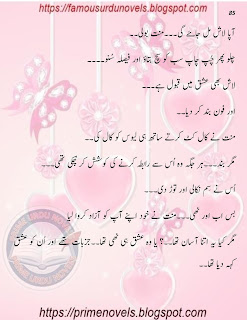 https://famousurdunovels.blogspot.com
85
آپا لاش مل جائے گی۔۔۔منت بولی۔۔
چلو پھر چپ چاپ سب کو سچ بتاؤ اور فیصلہ سنو۔۔۔۔
لاش بھی عشق میں قبول ہے۔۔۔
اور فون بند کر دیا۔۔
منت نے کال کٹ کرتے ساتھ ہی لبوس کو کال کی۔۔۔۔
مگر بند۔۔۔ہر جگہ وہ اُس سے رابطہ کرنے کی کوشش کر چکی تھی۔۔۔
اُس نے سم نکالی اور توڑ دی۔۔۔
بس اب اور نہی۔۔۔منت نے خود اپنے آپ کو آزاد کروا لیا
مگر کیا یہ اتنا آسان تھا۔۔؟ یا وہ عشق ہی نہی تھا۔۔جزبات تھے اور اُن کو عشق
کہہ دیا تھا۔۔
https://primenovels.blogspot.com